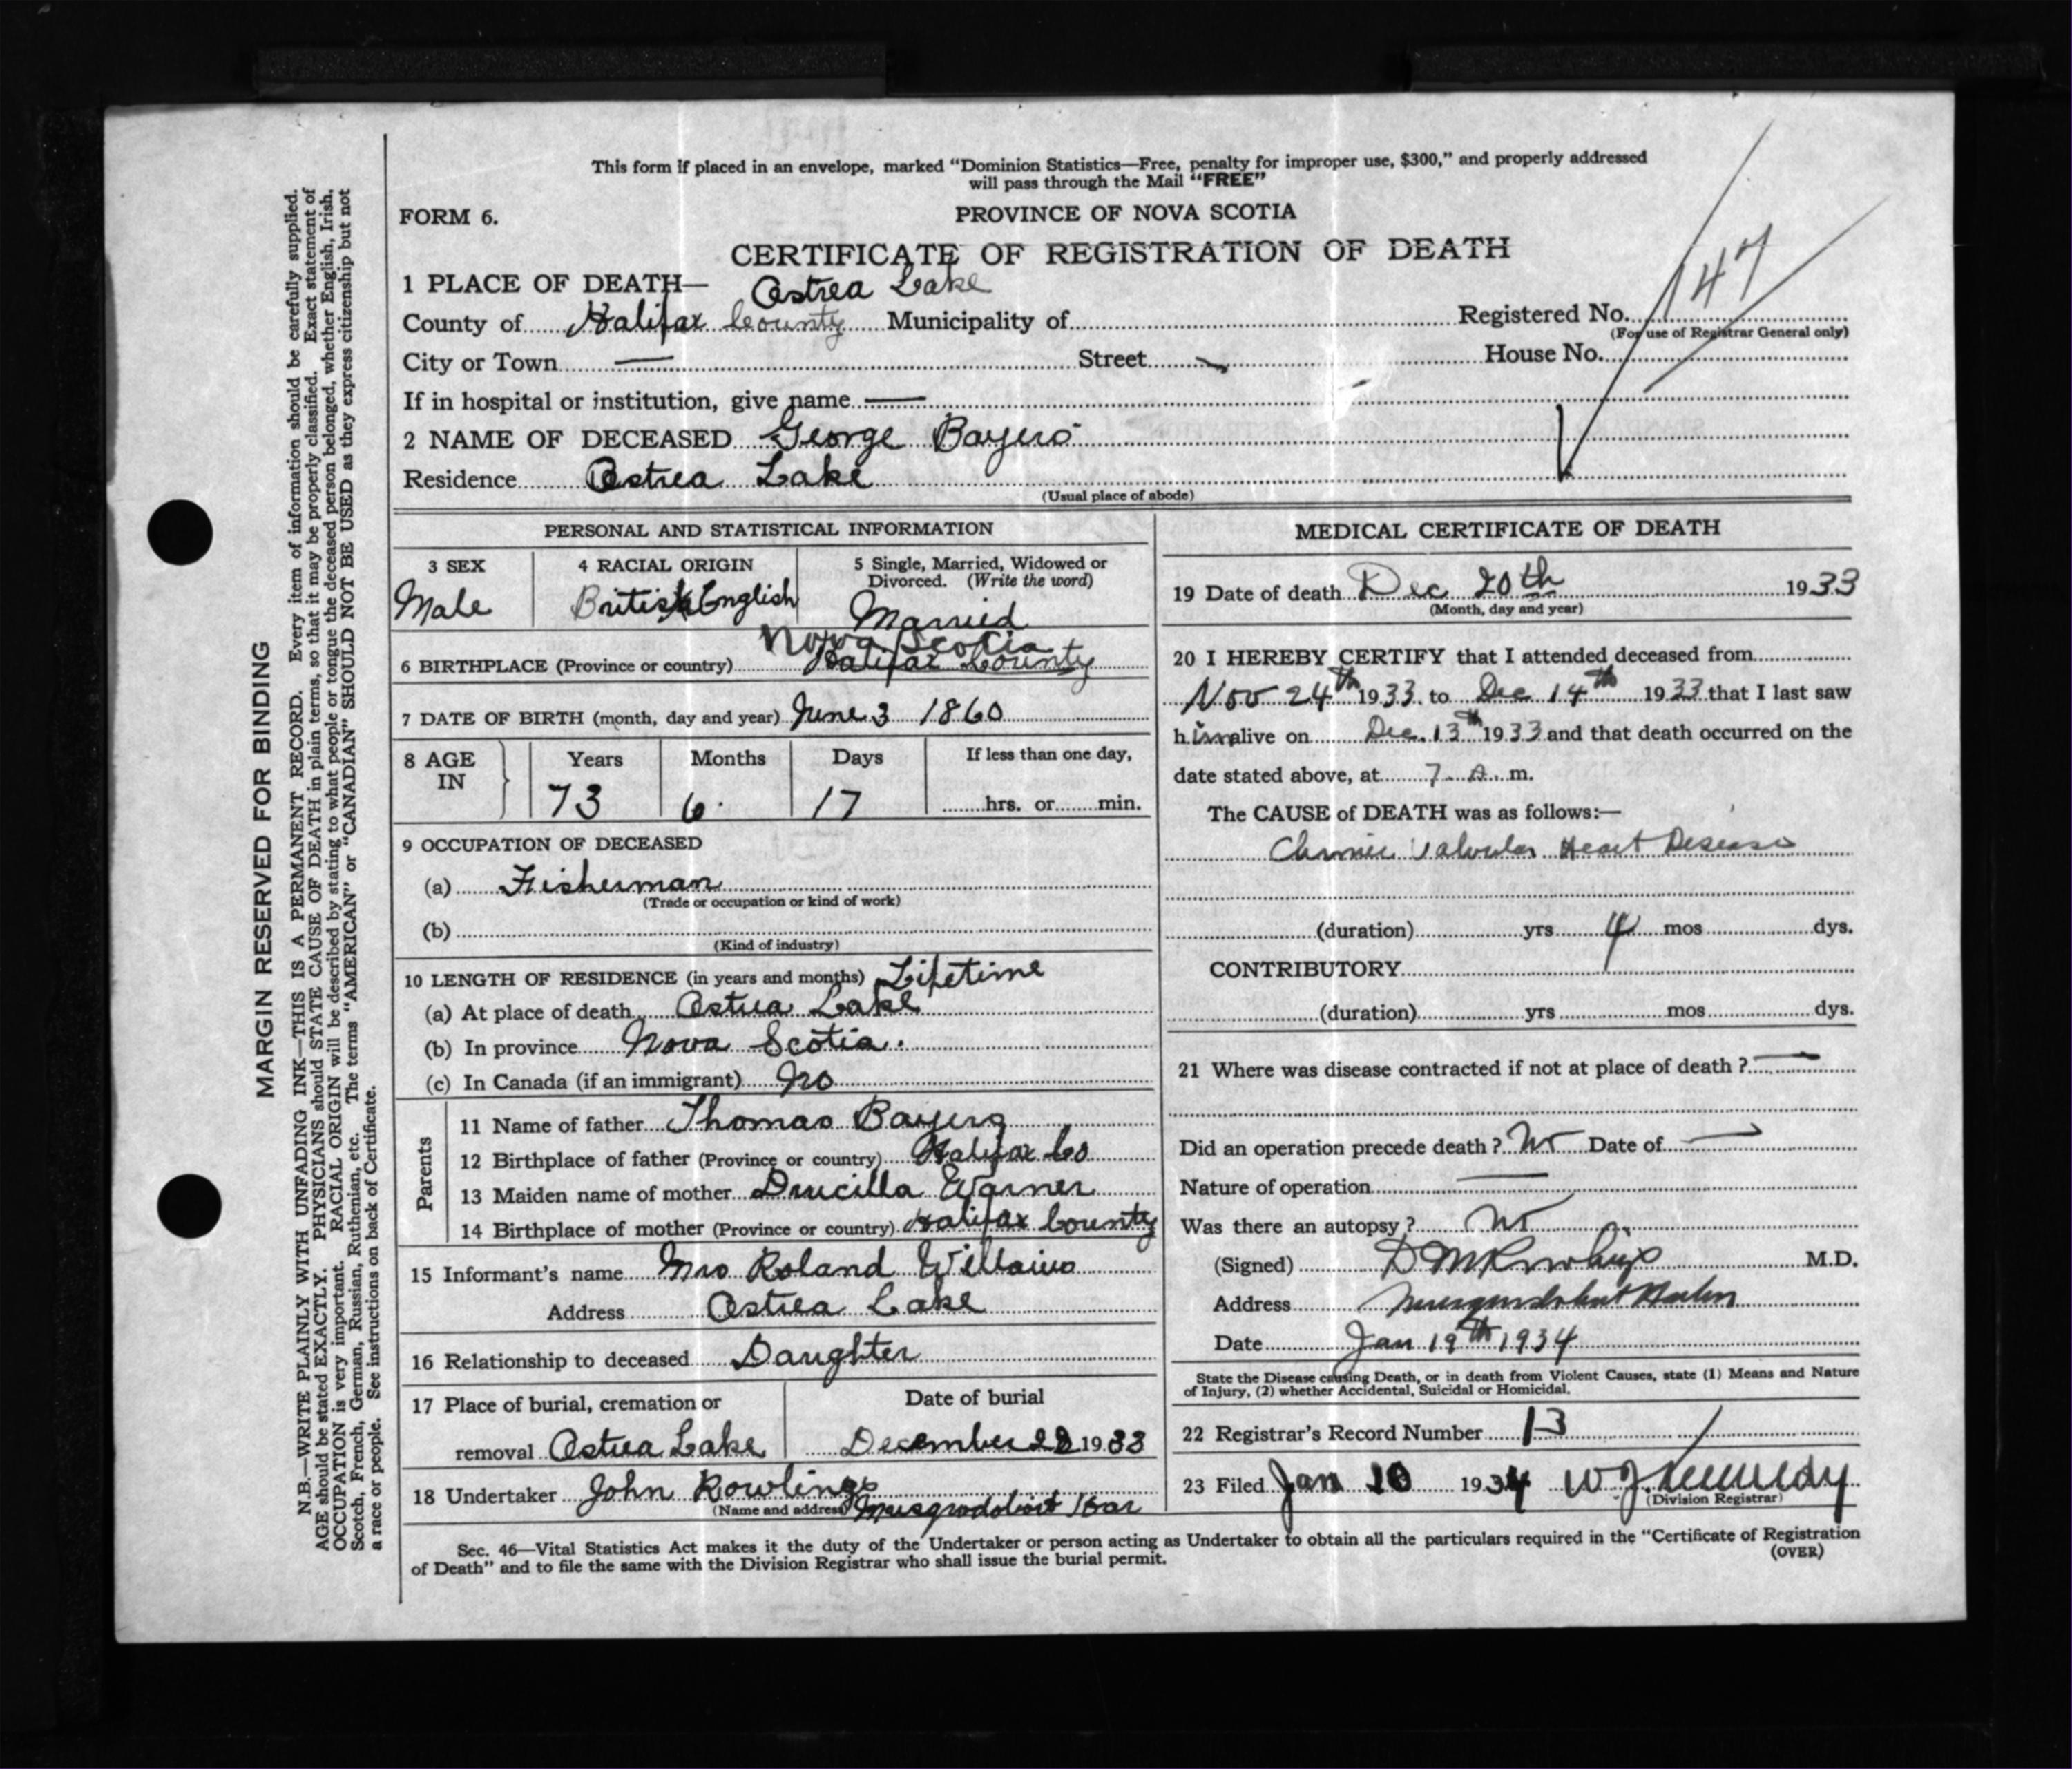 This form if placed in an envelope, marked "Dominion Statistics—Free, penalty for improper use, $300," and properly addressed
will pass through the Mail "FREE"
FORM 6.
PROVINCE OF NOVA SCOTIA
CERTIFICATE OF REGISTRATION OF DEATH
1 PLACE OF DEATH— Ostrea Lake
County of Halifax County Municipality of
Registered No. 147
(For use of Registrar General only)
City or Town — Street — House No.
If in hospital or institution, give name —
2 NAME OF DECEASED George Bayers
Residence Ostrea Lake
(Usual place of abode)
PERSONAL AND STATISTICAL INFORMATION
3 SEX
Male
4 RACIAL ORIGIN
British English
5 Single, Married, Widowed or
Divorced. (Write the word)
Married
Nova Scotia
6 BIRTHPLACE (Province or country) Halifax County
7 DATE OF BIRTH (month, day and year) June 3 1860
8 AGE IN
Years Months Days If less than one day,
73 6 17 hrs. or min.
9 OCCUPATION OF DECEASED
(a) Fisherman
(Trade or occupation or kind of work)
(b)
(Kind of industry)
10 LENGTH OF RESIDENCE (in years and months) Lifetime
(a) At place of death Ostrea Lake
(b) In province Nova Scotia.
(c) In Canada (if an immigrant) No
Parents
11 Name of father Thomas Bayers
12 Birthplace of father (Province or country) Halifax Co
13 Maiden name of mother Drucilla Warner
14 Birthplace of mother (Province or country) Halifax County
15 Informant's name Mrs Roland Williams
Address Ostrea Lake
16 Relationship to deceased Daughter
17 Place of burial, cremation or
removal Ostrea Lake
Date of burial
December 22 1933
18 Undertaker John Rowlings
(Name and address) Musgrodoboit Har
MEDICAL CERTIFICATE OF DEATH
19 Date of death Dec 20th 1933
(Month, day and year)
20 I HEREBY CERTIFY that I attended deceased from
Nov 24th 1933 to Dec 14th 1933 that I last saw
him alive on Dec. 13th 1933 and that death occurred on the
date stated above, at 7. A. m.
The CAUSE of DEATH was as follows:—
Chronic Valvular Heart Disease
(duration) yrs 4 mos dys.
CONTRIBUTORY
(duration) yrs mos dys.
21 Where was disease contracted if not at place of death? —
Did an operation precede death? No Date of —
Nature of operation —
Was there an autopsy? No
(Signed) M.D.
Address
Date Jan 19th 1934
State the Disease causing Death, or in death from Violent Causes, state (1) Means and Nature
of Injury, (2) whether Accidental, Suicidal or Homicidal.
22 Registrar's Record Number 13
23 Filed Jan 10 1934 W J Kennedy
(Division Registrar)
Sec. 46—Vital Statistics Act makes it the duty of the Undertaker or person acting as Undertaker to obtain all the particulars required in the "Certificate of Registration
of Death" and to file the same with the Division Registrar who shall issue the burial permit.
(OVER)
MARGIN RESERVED FOR BINDING
N.B.—WRITE PLAINLY WITH UNFADING INK—THIS IS A PERMANENT RECORD. Every item of information should be carefully supplied.
AGE should be stated EXACTLY. PHYSICIANS should STATE CAUSE OF DEATH in plain terms, so that it may be properly classified. Exact statement of
OCCUPATION is very important. RACIAL ORIGIN will be described by stating to what people or tongue the deceased person belonged, whether English, Irish,
Scotch, French, German, Russian, Ruthenian, etc. The terms "AMERICAN" or "CANADIAN" SHOULD NOT BE USED as they express citizenship but not
a race or people. See instructions on back of Certificate.